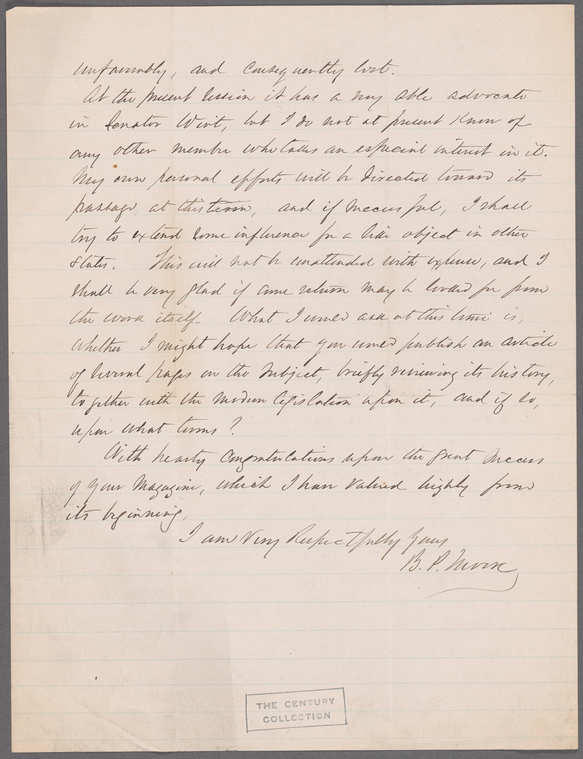 unfavorably, and consequently lost.
At the present session it has a very able advocate
in Senator Wirt, but I do not at present know of
any other member who takes an especial interest in it.
My own personal efforts will be directed toward its
passage, at this time, and if successful, I shall
try to extend some influence for a like object in other
States. This will not be unattended with expense, and I
shall be very glad if some return may be looked for from
the work itself. What I would ask at this time is,
whether I might hope that you would publish an article
of several pages on the subject, briefly reviewing its history,
together with the modern legislation upon it, and if so,
upon what terms?
With hearty congratulations upon the great success
of your Magazine, which I have valued highly from
its beginning,
I am Very Respectfully Yours
B. P.
THE CENTURY
COLLECTION